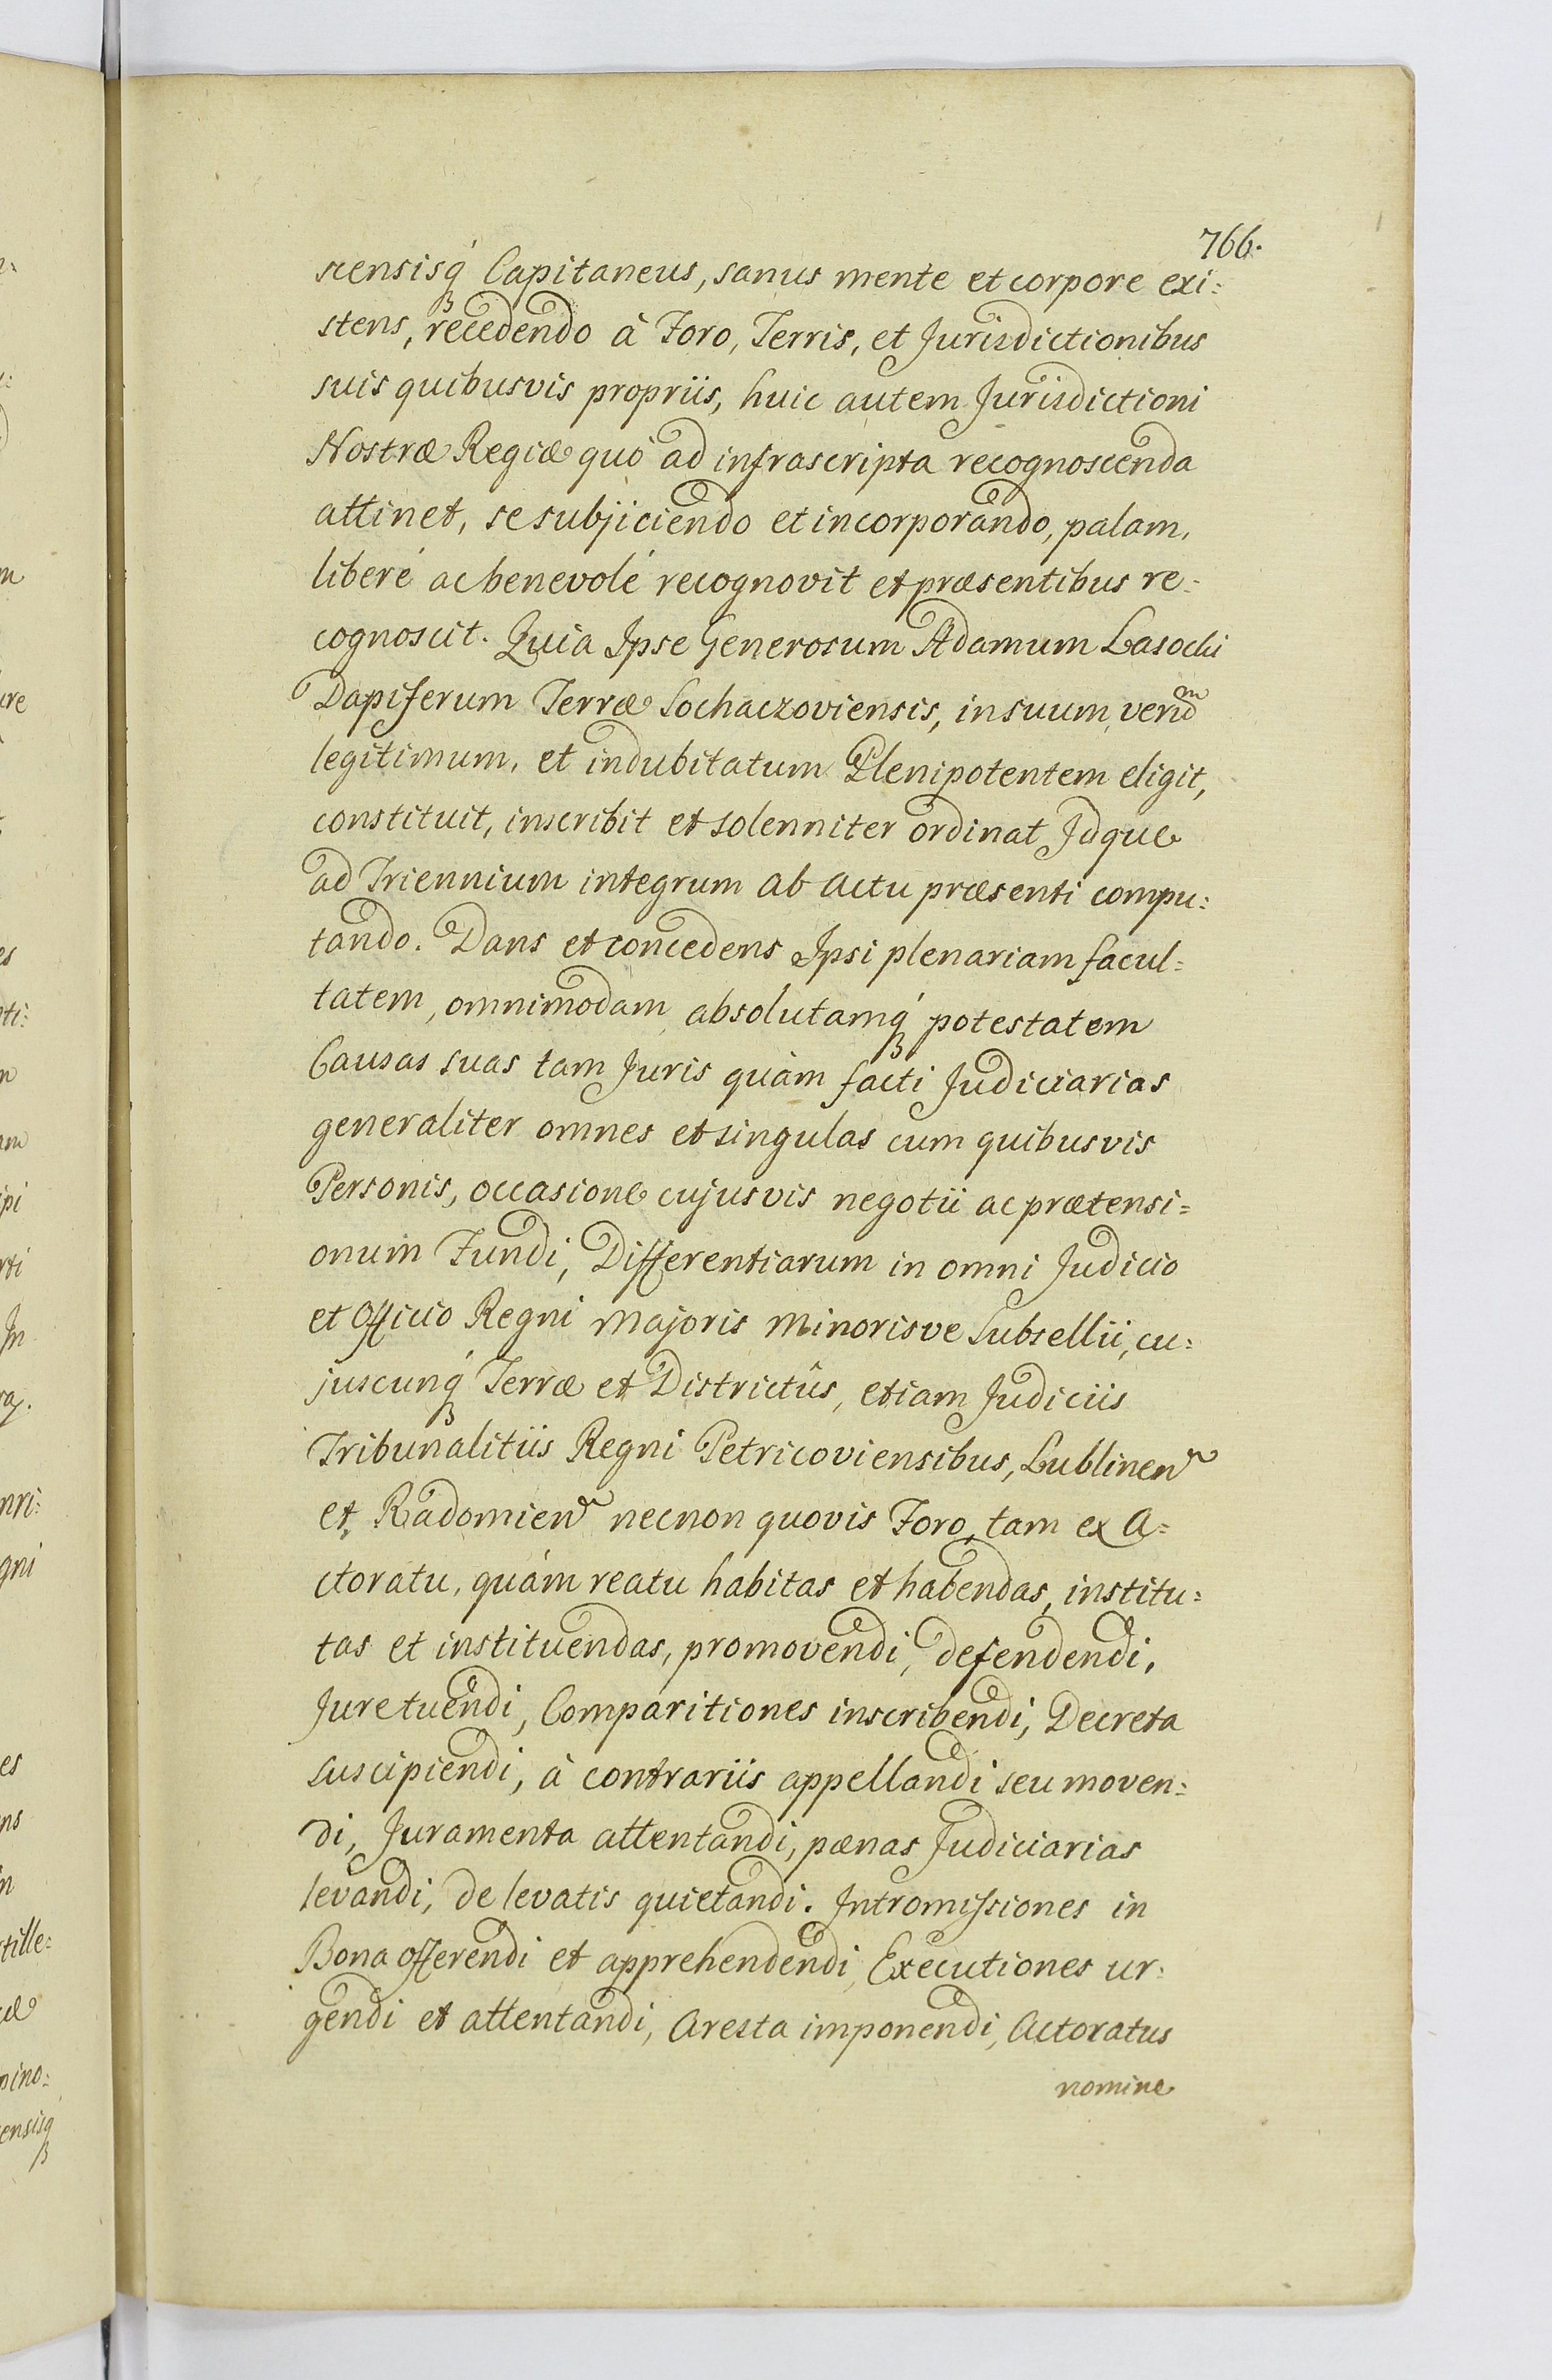 766.
scensisq́ Capitaneus, sanus mente et corpore exi:
stens, recedendo à Foro, Terris, et Jurisdictionibus
suis quibusvis propriis, huic autem Jurisdictioni
Nostræ Regiæ quò ad infrascripta recognoscenda
attinet, se subjiciendo et incorporando, palam,
liberé ac benevolé recognovit et præsentibus re:
cognoscit. Quia Ipse Generosum Adamum Lasocki
Dapiferum Terræ Sochaczoviensis, in suum, verũm
legitimum, et indubitatum Plenipotentem eligit,
constituit, inscribit et solenniter ordinat Idque
ad Triennium integrum ab actu præsenti compu:
tando. Dans et concedens Ipsi plenariam facul=
tatem, omnimodam absolutamq́ potestatem
Causas suas tam Juris quàm facti Judiciarias
generaliter omnes et singulas cum quibusvis
Personis, occasione cujusvis negotii ac prætensi=
onum Fundi, Differentiarum in omni Judicio
et Officio Regni Majoris Minorisve Subsellii, cu:
juscunq́ Terræ et Districtûs, etiam Judiciis
Tribunalitiis Regni Petricoviensibus, Lublinen
et Radomien necnon quovis Foro, tam ex A=
ctoratu, quám reatu habitas et habendas, institu:
tas et instituendas, promovendi, defendendi,
Jure tuendi, Comparitiones inscribendi, Decreta
suscipiendi, à contrariis appellandi seu moven:
di, Juramenta attentandi, pænas Judiciarias
levandi, de levatis quietandi. Intromissiones in
Bona offerendi et apprehendendi, Executiones ur:
gendi et attentandi, Aresta imponendi, Actoratus
nomine